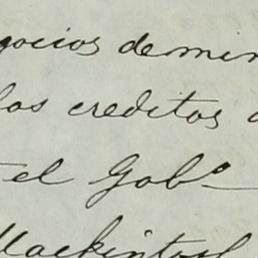 gocios de min
los creditos
el Gobº
Mackintosh